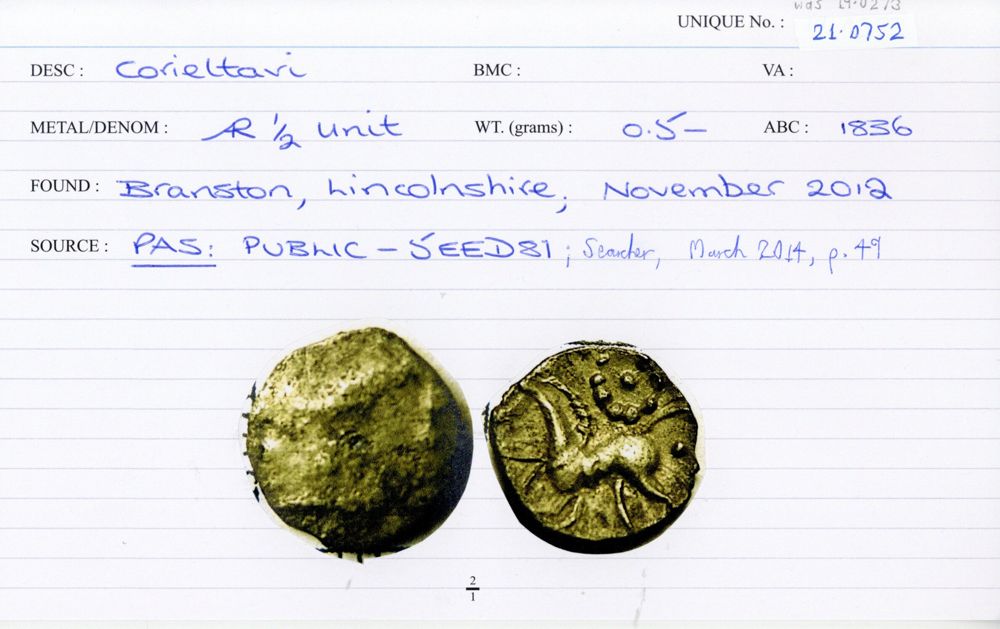 was 19.0273
UNIQUE No. : 21.0752
DESC : Corieltavi BMC : VA :
METAL/DENOM : AR ½ unit WT. (grams) : 0.5— ABC : 1836
FOUND : Branston, Lincolnshire; November 2012
SOURCE : PAS: PUBLIC – 5EED81; Searcher, March 2014, p. 49
2
1